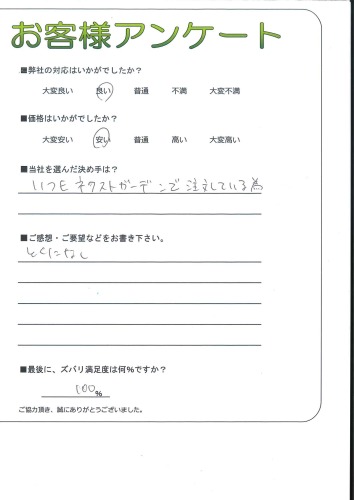 お客様アンケート
■弊社の対応はいかがでしたか？
大変良い 良い 普通 不満 大変不満
■価格はいかがでしたか？
大変安い 安い 普通 高い 大変高い
■当社を選んだ決め手は？
いつもネクストガーデンで注文している為
■ご感想・ご要望などをお書き下さい。
とくになし
■最後に、ズバリ満足度は何%ですか？
100%
ご協力頂き、誠にありがとうございました。